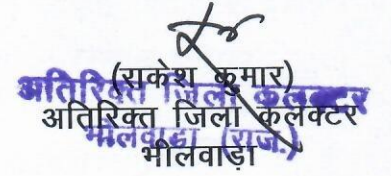 (राकेश कुमार)
अतिरिक्त जिला कलक्टर
अतिरिक्त जिला कलेक्टर
भीलवाड़ा (राज.)
भीलवाड़ा